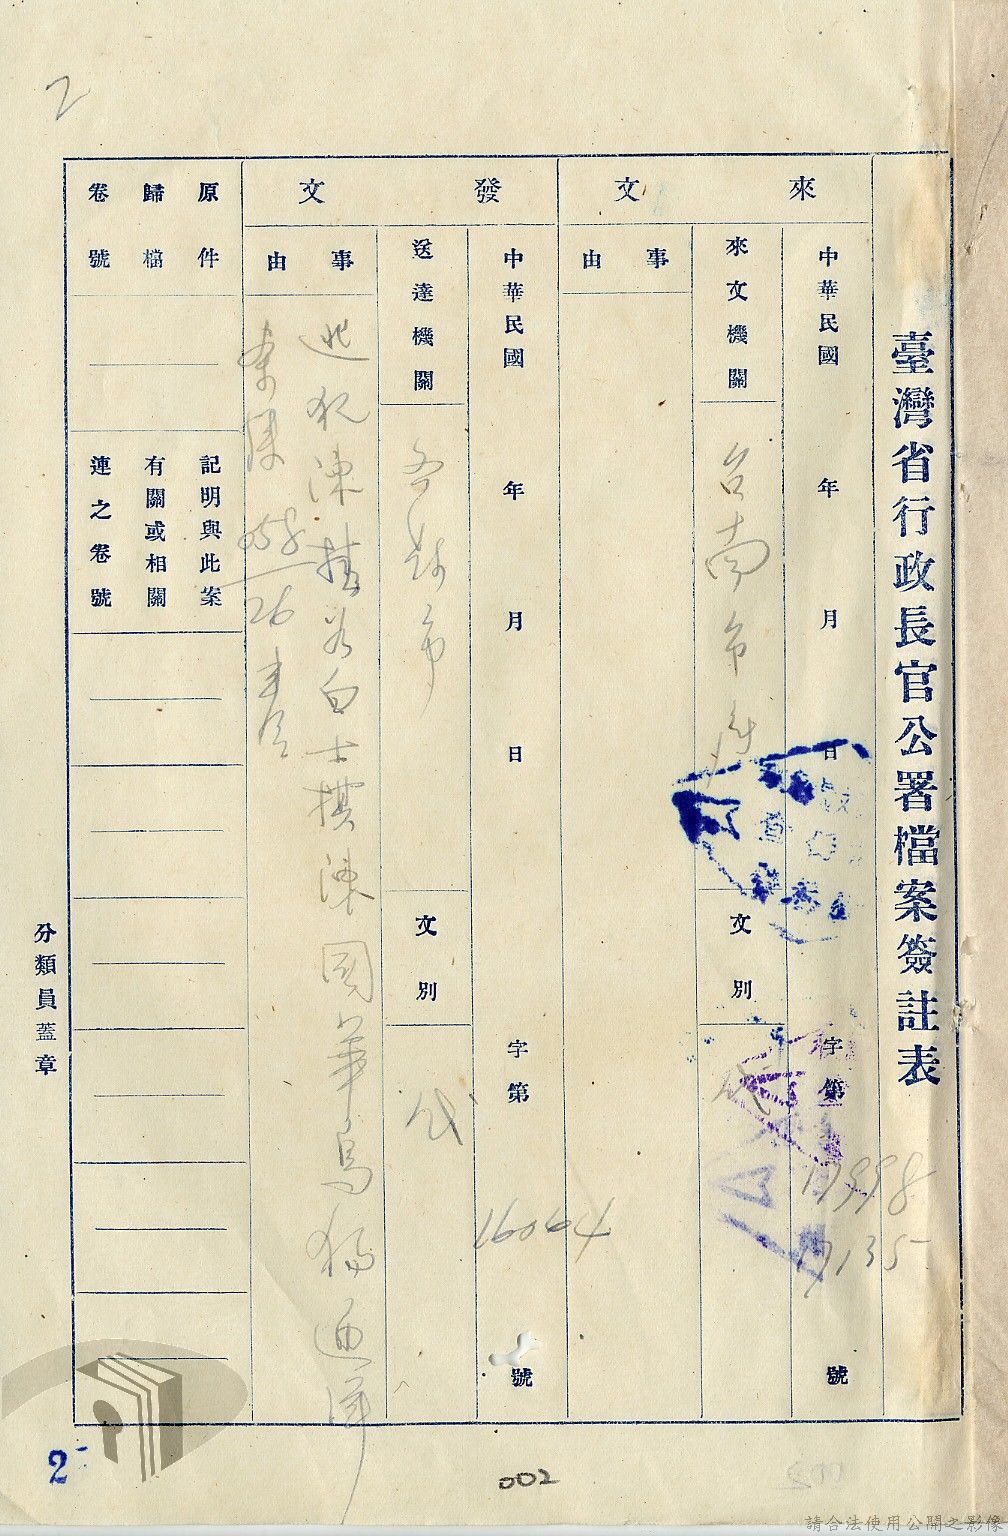 2
臺灣省行政長官公署檔案簽註表
來文
中華民國 年 月 日 字第 號
17998
17135
來文機關
台南市府
文別
代
事由
發文
中華民國 年 月 日 字第 號
16064
送達機關
各縣市
文別
代
事由
逃犯陳 白士棋陳國華
056/26
原件歸檔卷號
記明與此案有關或相關連之卷號
分類員蓋章
2
002
請合法使用公開之影像